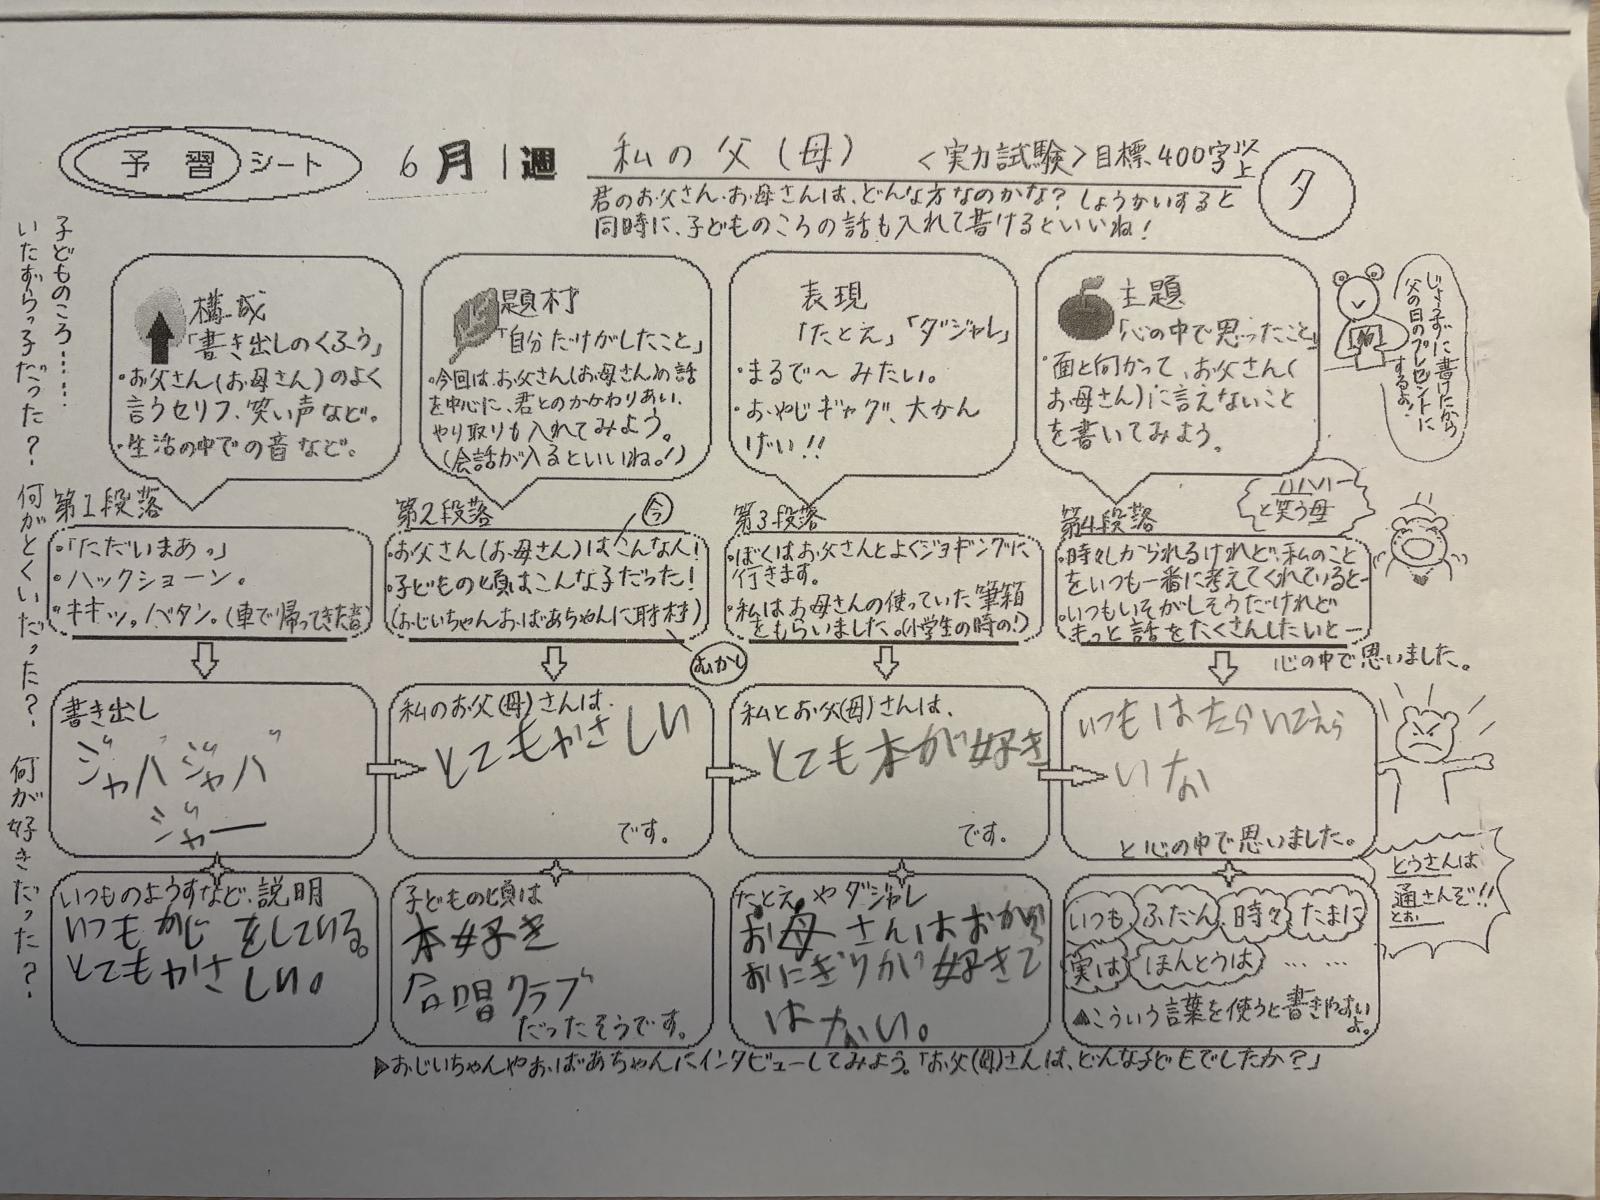 予習シート
6月1週
私の父(母)
<実力試験>目標400字以上
夕
君のお父さん・お母さんは、どんな方なのかな? しょうかいすると
同時に、子どものころの話も入れて書けるといいね!
子どものころ……
いたずらっ子だった? 何がとくいだった? 何が好きだった?
構成
「書き出しのくふう」
・お父さん(お母さん)のよく
言うセリフ、笑い声など。
・生活の中での音など。
題材
「自分だけがしたこと」
・今回は、お父さん(お母さん)の話
を中心に、君とのかかわりあい、
やり取りも入れてみよう。
(会話が入るといいね。!)
表現
「たとえ」「ダジャレ」
・まるで〜みたい。
・おやじギャグ、大かん
げい!!
主題
「心の中で思ったこと」
・面と向かって、お父さん(
お母さん)に言えないこと
を書いてみよう。
じょうずに書けたから
父の日のプレゼントに
するよ!
第1段落
・「ただいまあ。」
・ハックショーン。
・キキッ。バタン。(車で帰ってきた音)
第2段落
今
・お父さん(お母さん)はこんな人!
・子どもの頃はこんな子だった!
(おじいちゃんおばあちゃんに取材)
むかし
第3段落
・ぼくはお父さんとよくジョギングに
行きます。
・私はお母さんの使っていた筆箱
をもらいました。(小学生の時の!)
第4段落
ハハハー
と笑う母
・時々しかられるけれど、私のこと
をいつも一番に考えてくれていると―
・いつもいそがしそうだけれど
もっと話をたくさんしたいと―
心の中で思いました。
書き出し
ジャバジャバ
ジャー
私のお父(母)さんは、
とてもやさしい
です。
私とお父(母)さんは、
とても本が好き
です。
いつもはたらいてえら
いな
と心の中で思いました。
いつものようすなど、説明
いつもかじをしている。
とてもやさしい。
子どもの頃は
本好き
合唱クラブ
だったそうです。
たとえやダジャレ
お母さんはおかから
おにぎりかい好きで
はかい。
いつも ふだん 時々 たまに
実は ほんとうは ……
▲こういう言葉を使うと書きやすい
よ。
とうさんは
通さんぞ!!
とお
▶おじいちゃんやおばあちゃんにインタビューしてみよう。「お父(母)さんは、どんな子どもでしたか?」